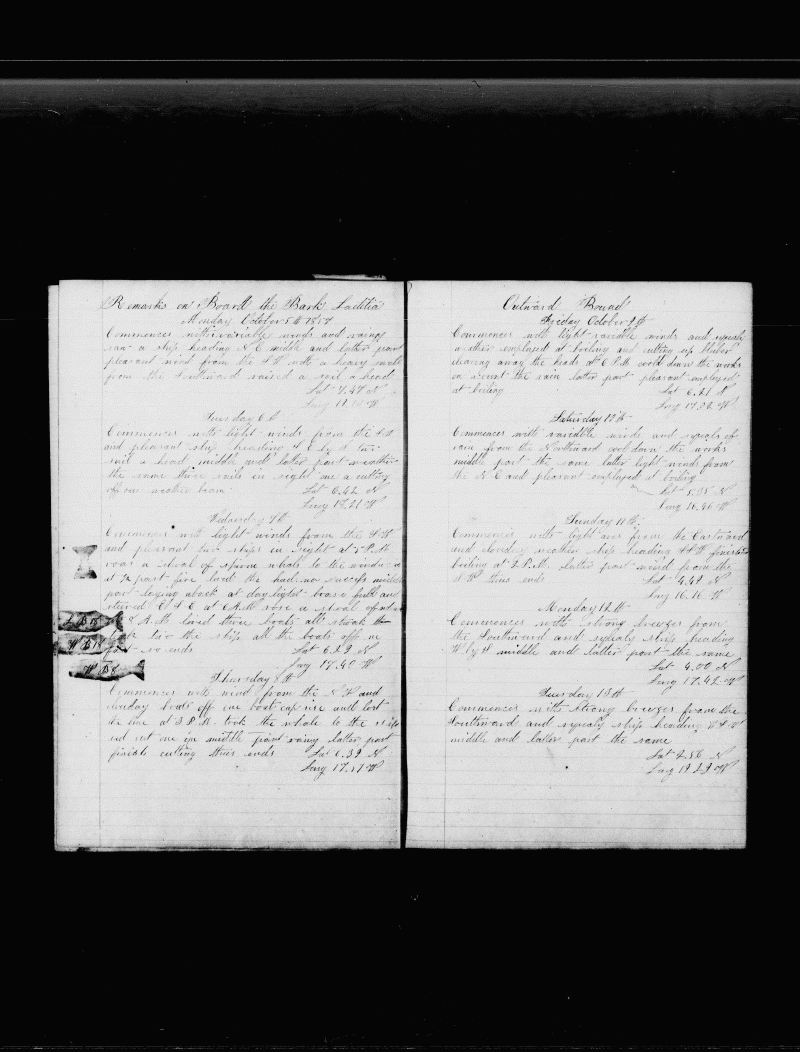 Remarks on Board the Bark Laetitia
Monday October 5th 1857
Commences with variable winds and rainy
saw a ship heading S E middle and latter part
pleasant wind from the S W with a heavy swell
from the Southward raised a sail a head
Lat 7.47 N
Long W
Tuesday 6th
Commences with light winds from the S W
and pleasant ship heading S E by S two
sail a head middle and latter part weather
the same three sails in sight one a cutting
off our weather beam Lat 6.42 N
Long 18.21 W
Wednesday 7th
Commences with light winds from the S W
and pleasant two ships in sight at 2 P.M.
rose a shoal of sperm whales to the windward
at 1/2 past five lowd the had no success middle
part laying aback at daylight brase full and
steered E S E at 6 A.M. rose a shoal of
8 A.M. lowed three boats all struck
two the ship all the boats off
part so ends Lat 6.29 N
Long 17.40 W
Thursday 8th
Commences with wind from the N W and
cloudy boats off one boat cap ise and lost
the line at 3 P.M. took the whale to the ship
and cut one in middle part rainy latter part
finish cutting thus ends Lat 6.39 N
Long 17.17 W
Outward Bound
Friday October 9th
Commences with light variable winds and squals
weather employed at boiling and cutting up bluber
clearing away the heads at 6 P.M. coold down the works
on account the rain latter part pleasant employed
at boiling Lat 6.21 N
Long 17.32 W
Saturday 10th
Commences with variable winds and squals of
rain from the Northward cool down the works
middle part the same latter light winds from
the N E and pleasant employed at boiling
Lat 5.35 N
Long 16.46 W
Sunday 11th
Commences with light airs from the Eastward
and cloudy weather ship heading S S W finished
boiling at 2 P.M. latter part wind from the
S W thus ends Lat 4.49 N
Long 16.16 W
Monday 12th
Commences with strong breezes from
the Southward and squaly ship heading
W by S middle and latter part the same
Lat 4.00 N
Long 17.42 W
Tuesday 13th
Commences with strong breezes from the
Southward and squaly ship heading W S W
middle and latter part the same
Lat 2.56 N
Long 19.29 W